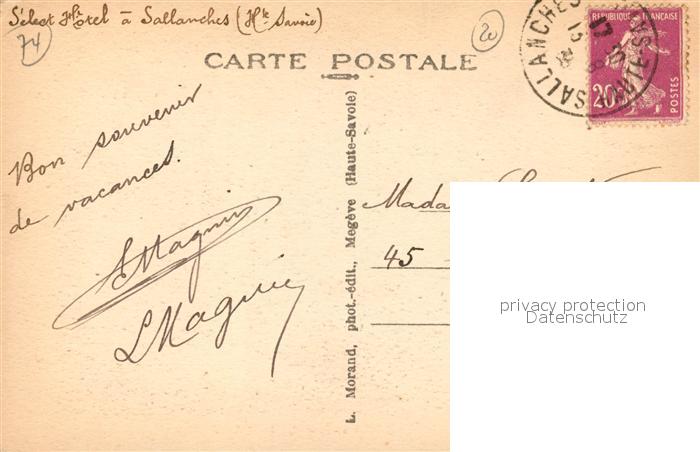 Sélect Hôtel à Sallanches (Hte Savoie)
74
20
CARTE POSTALE
SALLANCHES
RÉPUBLIQUE FRANÇAISE
20
POSTES
Bon souvenir
de vacances.
Magnin
L Magnin
L. Morand, phot.-édit., Megève (Haute-Savoie)
45
privacy protection
Datenschutz